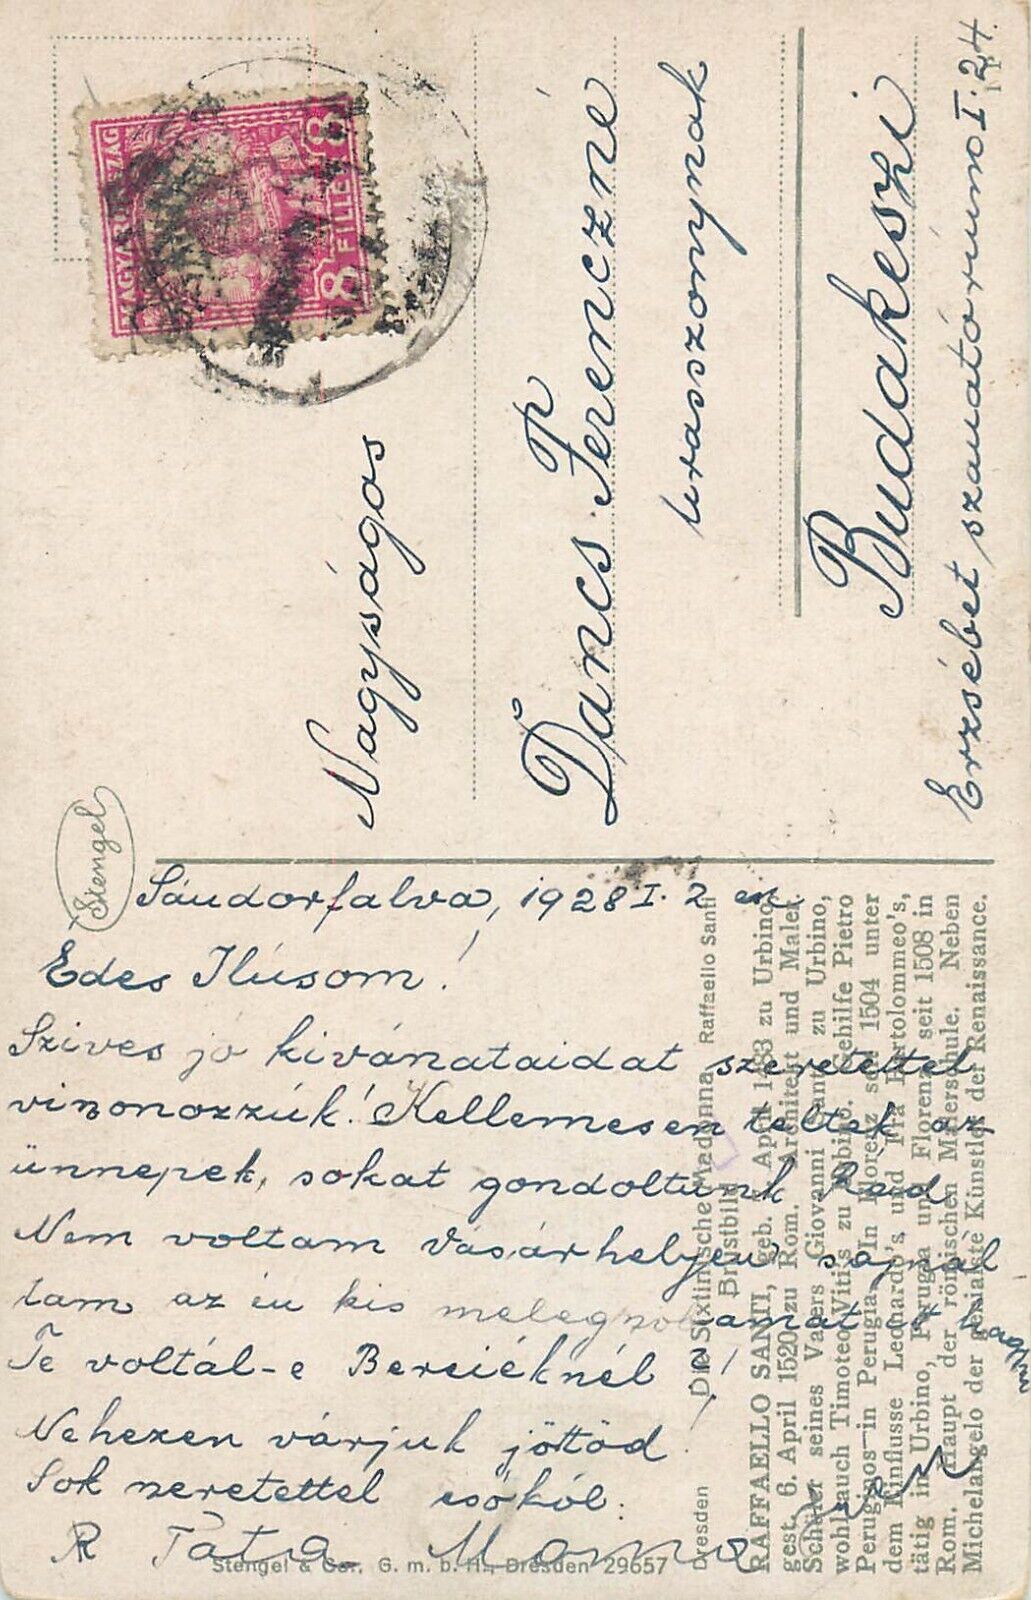 MAGYARORSZÁG
8 FILLÉR 8
Nagyságos
Dancs Ferenczné
úrasszonynak
Budakeszi
Erzsébet szanatóriumo I. 24.
Stengel
Sándorfalva, 1928 I. 2 án
Édes Ilúsom!
Szives jó kivánataidat szeretettel
viszonozzúk! Kellemesen teltek az
ünnepek, sokat gondoltunk Rád
Nem voltam Vásárhelyen sajnál
tam az én kis melegszobamat itt hagyni
Te voltál-e Berciéknél?!
Nehezen várjuk jöttöd!
Sok szeretettel csókól:
Tata Mama
Stengel & Co., G. m. b. H., Dresden 29657
Dresden Die Sixtinische Madonna Raffaello Santi
Brustbild
RAFFAELLO SANTI, geb. 6. April 1483 zu Urbino,
gest. 6. April 1520 zu Rom. Architekt und Maler.
Schüler seines Vaters Giovanni Santi zu Urbino,
wohl auch Timoteo Vitis zu Urbino. Gehilfe Pietro
Peruginos in Perugia. In Florenz seit 1504 unter
dem Einflusse Leonardo's und Fra Bartolommeo's,
tätig in Urbino, Perugia und Florenz, seit 1508 in
Rom. Haupt der römischen Malerschule. Neben
Michelangelo der genialste Künstler der Renaissance.